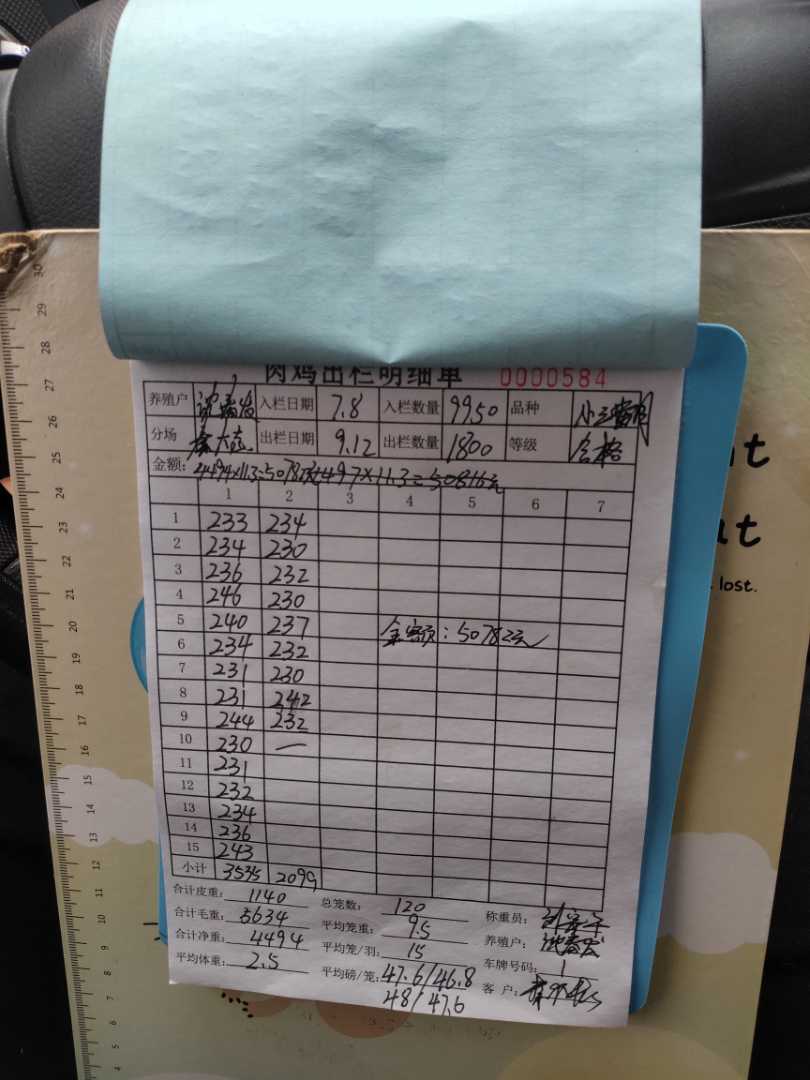 肉鸡出栏明细单 0000584
养殖户 入栏日期 7.8 入栏数量 9950 品种
分场 出栏日期 9.12 出栏数量 1800 等级 合格
金额: 4494×11.3=50782 4497×11.3=50816元
1 2 3 4 5 6 7
1 233 234
2 234 230
3 236 232
4 246 230
5 240 237 金额:50782元
6 234 232
7 231 230
8 231 242
9 244 232
10 230 —
11 231
12 232
13 234
14 236
15 243
小计 3535 2099
合计皮重: 1140 总笼数: 120 称重员:
合计毛重: 5634 平均笼重: 9.5 养殖户:
合计净重: 4494 平均笼/羽: 15 车牌号码: 1
平均体重: 2.5 平均磅/笼: 47.6/46.8 客户:
48/47.6
lost.
30
29
28
27
26
25
24
23
22
21
20
19
18
17
16
15
14
13
12
11
10
9
8
7
6
5
4